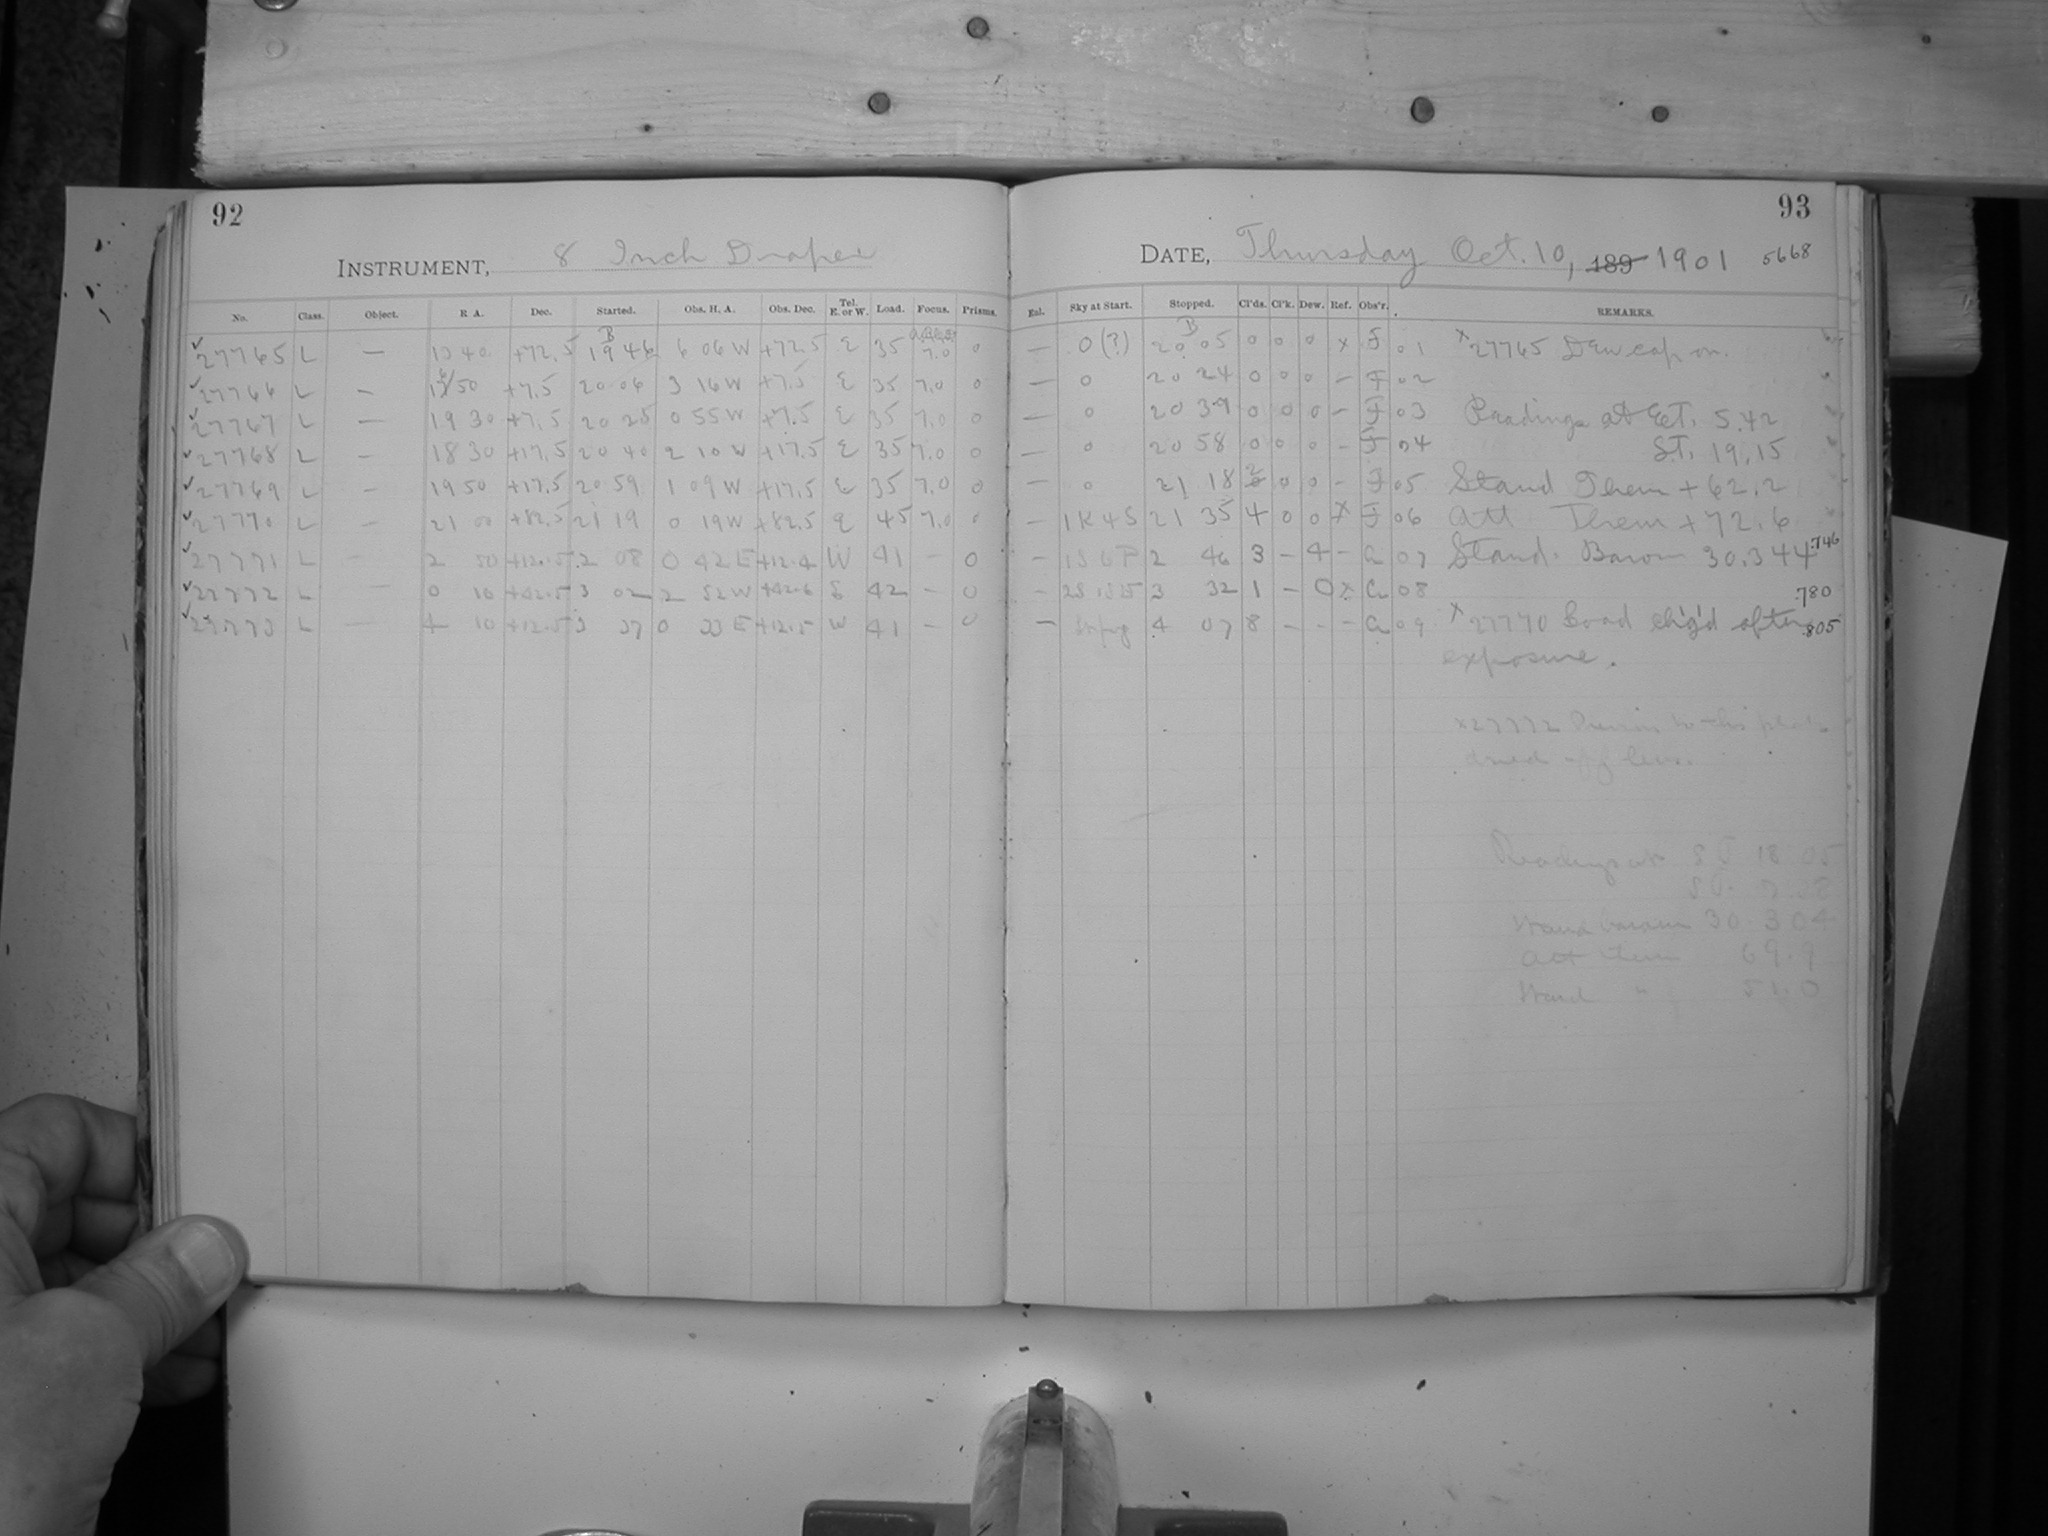 92
INSTRUMENT, 8 Inch Draper
No. Class. Object. R A. Dec. Started. Obs. H. A. Obs. Dec. Tel. E. or W. Load. Focus. Prisms.
27765 L — 13 40 +72.5 B 19 46 6 06 W +72.5 E 35 7.0 0
27766 L — 50 +7.5 20 06 3 16 W +7.5 E 35 7.0 0
27767 L — 19 30 +7.5 20 25 0 55 W +7.5 E 35 7.0 0
27768 L — 18 30 +17.5 20 40 2 10 W +17.5 E 35 7.0 0
27769 L — 19 50 +17.5 20 59 1 09 W +17.5 E 35 7.0 0
27770 L — 21 00 +82.5 21 19 0 19 W +82.5 E 45 7.0 0
27771 L — 2 50 +12.5 2 08 0 42 E +12.4 W 41 — 0
27772 L — 0 10 +42.5 3 02 2 52 W +42.6 E 42 — 0
27773 L — 4 10 +12.5 3 37 0 33 E +12.5 W 41 — 0
93
DATE, Thursday Oct. 10, 189 1901 5668
Exl. Sky at Start. Stopped. Cl'ds. Cl'k. Dew. Ref. Obs'r. REMARKS.
— 0 (?) B 20 05 0 0 0 x F 01 x 27765 Dew cap on.
— 0 20 24 0 0 0 — F 02
— 0 20 39 0 0 0 — F 03 Readings at E.T. 5.42
— 0 20 58 0 0 0 — F 04 S.T. 19.15
— 0 21 18 2 0 0 — F 05 Stand Therm +62.2
— 1K4S 21 35 4 0 0 x F 06 Att Therm +72.6
— 1S6P 2 46 3 — 4 — 07 Stand. Barom 30.344 .746
— 3 32 1 — 0 x 08 .780
— 4 07 8 — — — 09 x 27770 Load ch'g'd after .805
exposure.
x 27772 Previous to this plate
dried off lens.
Readings at S T 18 05
Stand barom 30 304
Att therm 69.9
Stand " 51.0